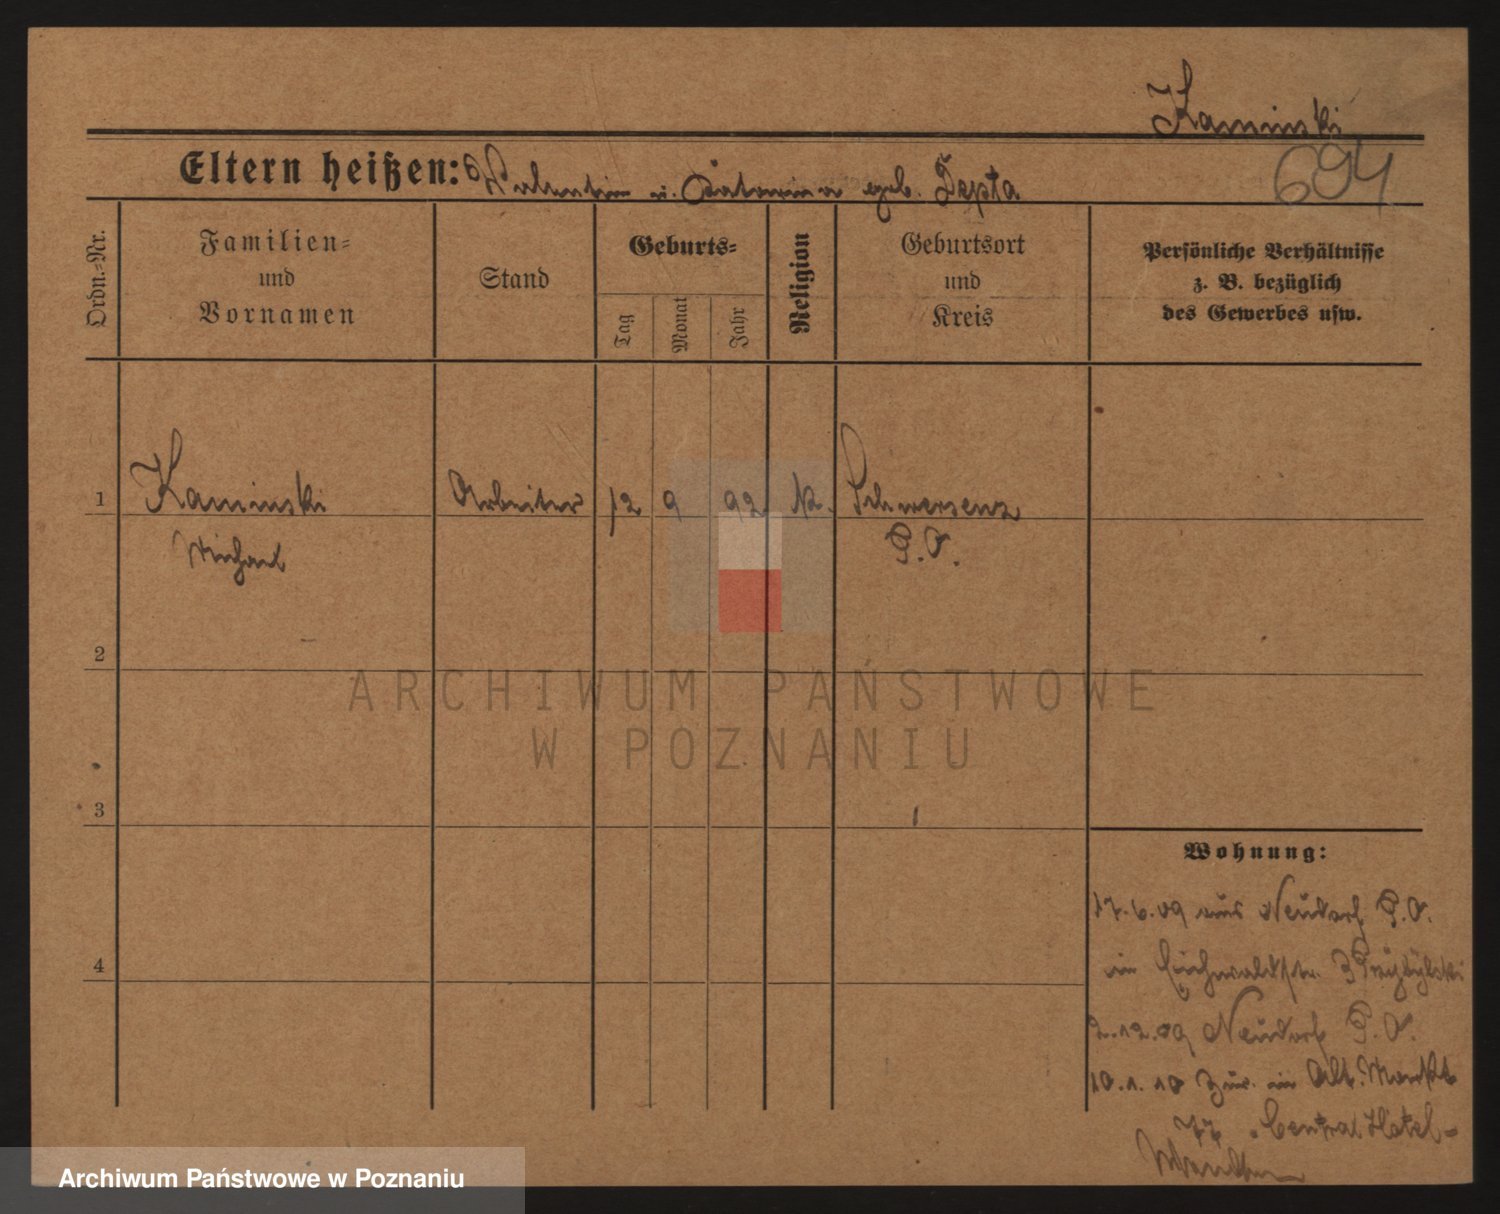 Kaminski
694
Eltern heißen: Valentin u. Katarina geb. Depta
Ordn.-Nr.
Familien-
und
Vornamen
Stand
Geburts-
Tag
Monat
Jahr
Religion
Geburtsort
und
Kreis
Persönliche Verhältnisse
z. B. bezüglich
des Gewerbes usw.
1
Kaminski Arbeiter 12 9 92 k. Schwersenz
Michael P. O.
2
3
4
ARCHIWUM PAŃSTWOWE
W POZNANIU
Wohnung:
17.6.09 aus Neudorf P. O.
in Eichwaldstr. 3 Przybylski
2.12.09 Neudorf P. O.
10.1.10 zur. in Alt. Markt
77 Central Hotel-
Archiwum Państwowe w Poznaniu